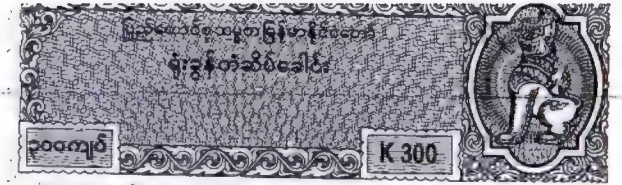 ပြည်ထောင်စုသမ္မတမြန်မာနိုင်ငံတော်
ရုံးခွန်တံဆိပ်ခေါင်း
၃၀၀ကျပ်
K 300